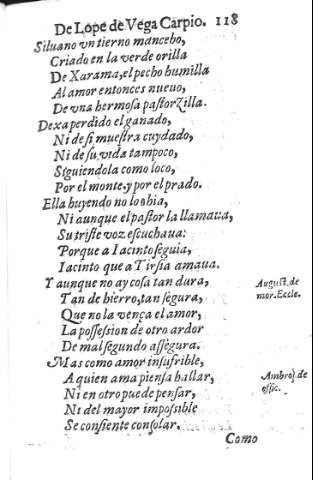 De Lope de Vega Carpio. 118
Siluano vn tierno mancebo,
Criado en la verde orilla
De Xarama, el pecho humilla
Al amor entonces nueuo,
De vna hermosa pastorZilla.
Dexa perdido el ganado,
Ni de si muestra cuydado,
Ni de su vida tampoco,
Siguiendola como loco,
Por el monte y por el prado.
Ella huyendo no lo ohia,
Ni aunque el pastor la llamaua,
Su triste voz escuchaua:
Porque a Iacinto seguia,
Iacinto que a Tirsia amaua.
Y aunque no ay cosa tan dura,
Tan de hierro, tan segura,
Que no la vença el amor,
La possession de otro ardor
De mal segundo assegura.
Mas como amor insufrible,
A quien ama piensa hallar,
Ni en otro puede pensar,
Ni del mayor impossible
Se consiente consolar.
August. de
mor. Eccle.
Ambros. de
offic.
Como